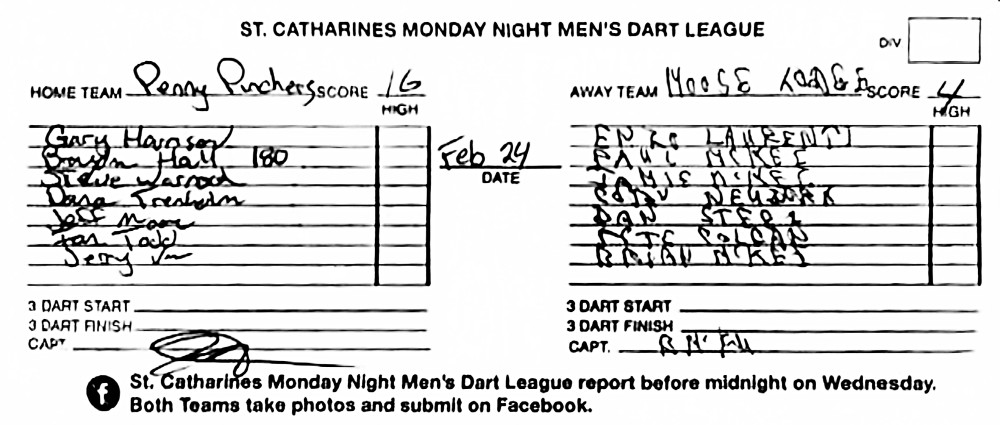 ST. CATHARINES MONDAY NIGHT MEN'S DART LEAGUE
DIV
HOME TEAM Penny Pinchers SCORE 16
HIGH
AWAY TEAM MOOSE LODGE SCORE 4
HIGH
Gary Harrison
Hall 180
Steve
Dana Trenholm
Jeff Moore
Ian Todd
Jerry
Feb 24
DATE
ENZO LAURENTI
PAUL MCKEE
JAMIE MCKEE
DAN
PETE
BRIAN MCKEE
3 DART START
3 DART FINISH
CAPT.
3 DART START
3 DART FINISH
CAPT.
St. Catharines Monday Night Men's Dart League report before midnight on Wednesday.
Both Teams take photos and submit on Facebook.